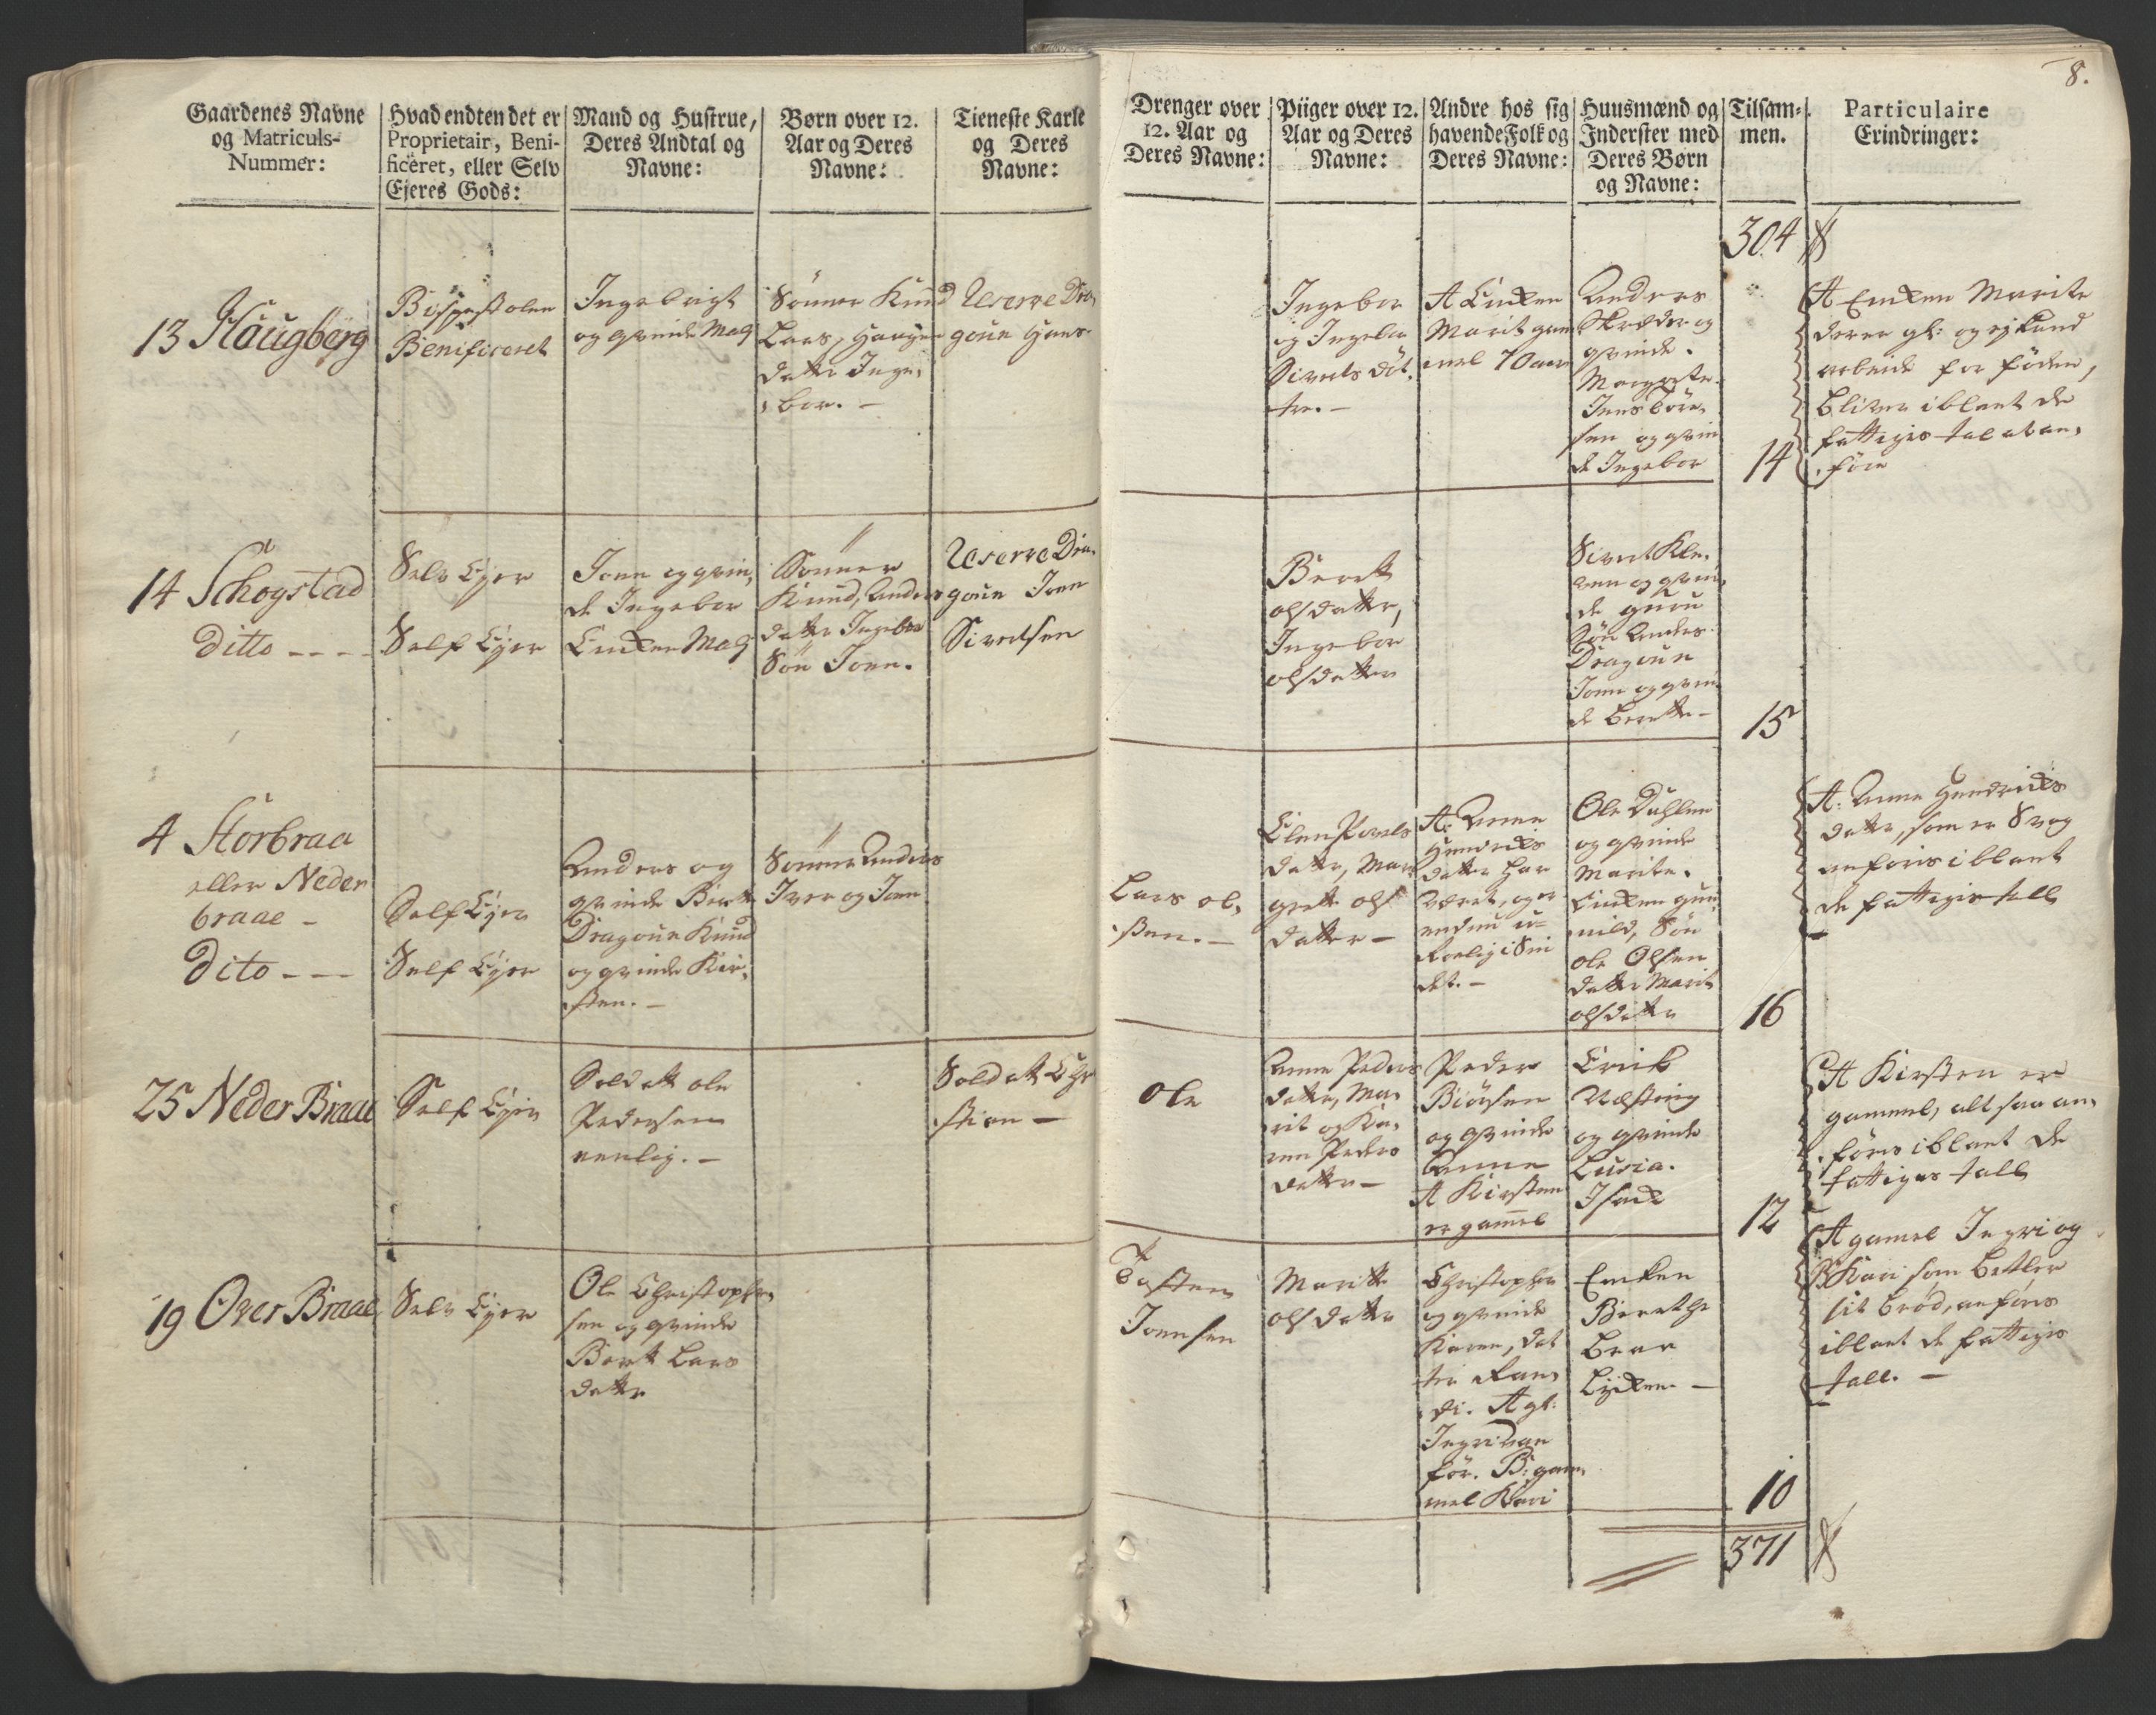 8.
Gaardenes Navne
og Matriculs-
Nummer:
Hvad endten det er
Proprietair, Beni-
ficeret, eller Selv
Ejeres Gods:
Mand og Hustrue,
Deres Andtal og
Navne:
Børn over 12.
Aar og Deres
Navne:
Tieneste Karle
og Deres
Navne:
Drenger over
12. Aar og
Deres Navne:
Piiger over 12.
Aar og Deres
Navne:
Andre hos sig
havende Folk og
Deres Navne:
Huusmænd og
Inderster med
Deres Børn
og Navne:
Tilsam-
men.
Particulaire
Erindringer:
304
13 Haugberg
Bispestolen
Benificeret
Ingebrigt
og qvinde Mag
Sønner Knud
Lars, Haagen
datter Inge,
bor.
Reserve Dra,
goun Hans
Ingebor
og Ingebor
Siverts döt,
tre.
A Enken
Marit gam
mel 70 aar
Anders
Skræder og
qvinde
Margrete.
Jens
sen og qvin
de Ingebor
14
A Enken Marite
deren gl: og ej kand
arbeide for föden,
bliver iblant de
fattiges tal at an,
före
14 Schogstad
ditto
Selv Ejer
Self Ejer
Joen og qvin,
de Ingebor
Enken Mag
Sönner
Knud, Anders
datter Ingebor
Sön Joen.
Reserve Dra,
goun Joen
Sivertsen
Beret
olsdatter,
Ingebor
olsdatter
Sivert Kle,
ven og qvin,
de guru
Sön Anders
Dragoun
Joen og qvin
de berette
15
4 Storbraa
eller Neder
braae
Dito
Self Ejer
Self Ejer
Anders og
qvinde Berette
Dragoun Knud
og qvinde Kir,
sten.
Sönner Anders
Iver og Joen
Lars ol,
ssen.
Elen Povels
datter, Mar
grette ols
datter
A: Anne
Hendrichs
datter har
været, og er
endnu u-
roelig i Sin
det.
Ole Dahlen
og qvinde
Marite.
Enken gun,
nild, Sön
ole Olsen
datter Marit
olsdatter
16
A: Anne Hendrichs
datter, som er Svag
anföris iblant
de fattigis tall
25 Neder Braae
Self Ejer
Soldatt ole
Pedersen
enlig.
Soldat Chr
stian
Ole
Anne Peders
datter, Ma,
rit og Ka,
ren Peders
datter
Peder
Biörsen
og qvinde
Anne
A Kirsten
er gammel
Erick
Næsting
og qvinde
Lucia.
Isack
12
A Kirsten er
gammel, alt saa an,
föres iblant de
fattiges tall
19 Over Braae
Selv Ejer
Ole Christopher,
sen og qvinde
Berit Lars
datter
Tosten
Joensen
Maritte
olsdatter
Christopher
og qvinde
Karen, dat
ter Ran,
di. A gl:
Ingri
för. B: gam,
mel Kari
Enken
Birethe
Brae
Lycken.
10
A gamel Ingri og
B Kari som betler
sit bröd, anföris
iblant de fattiges
tall.
371